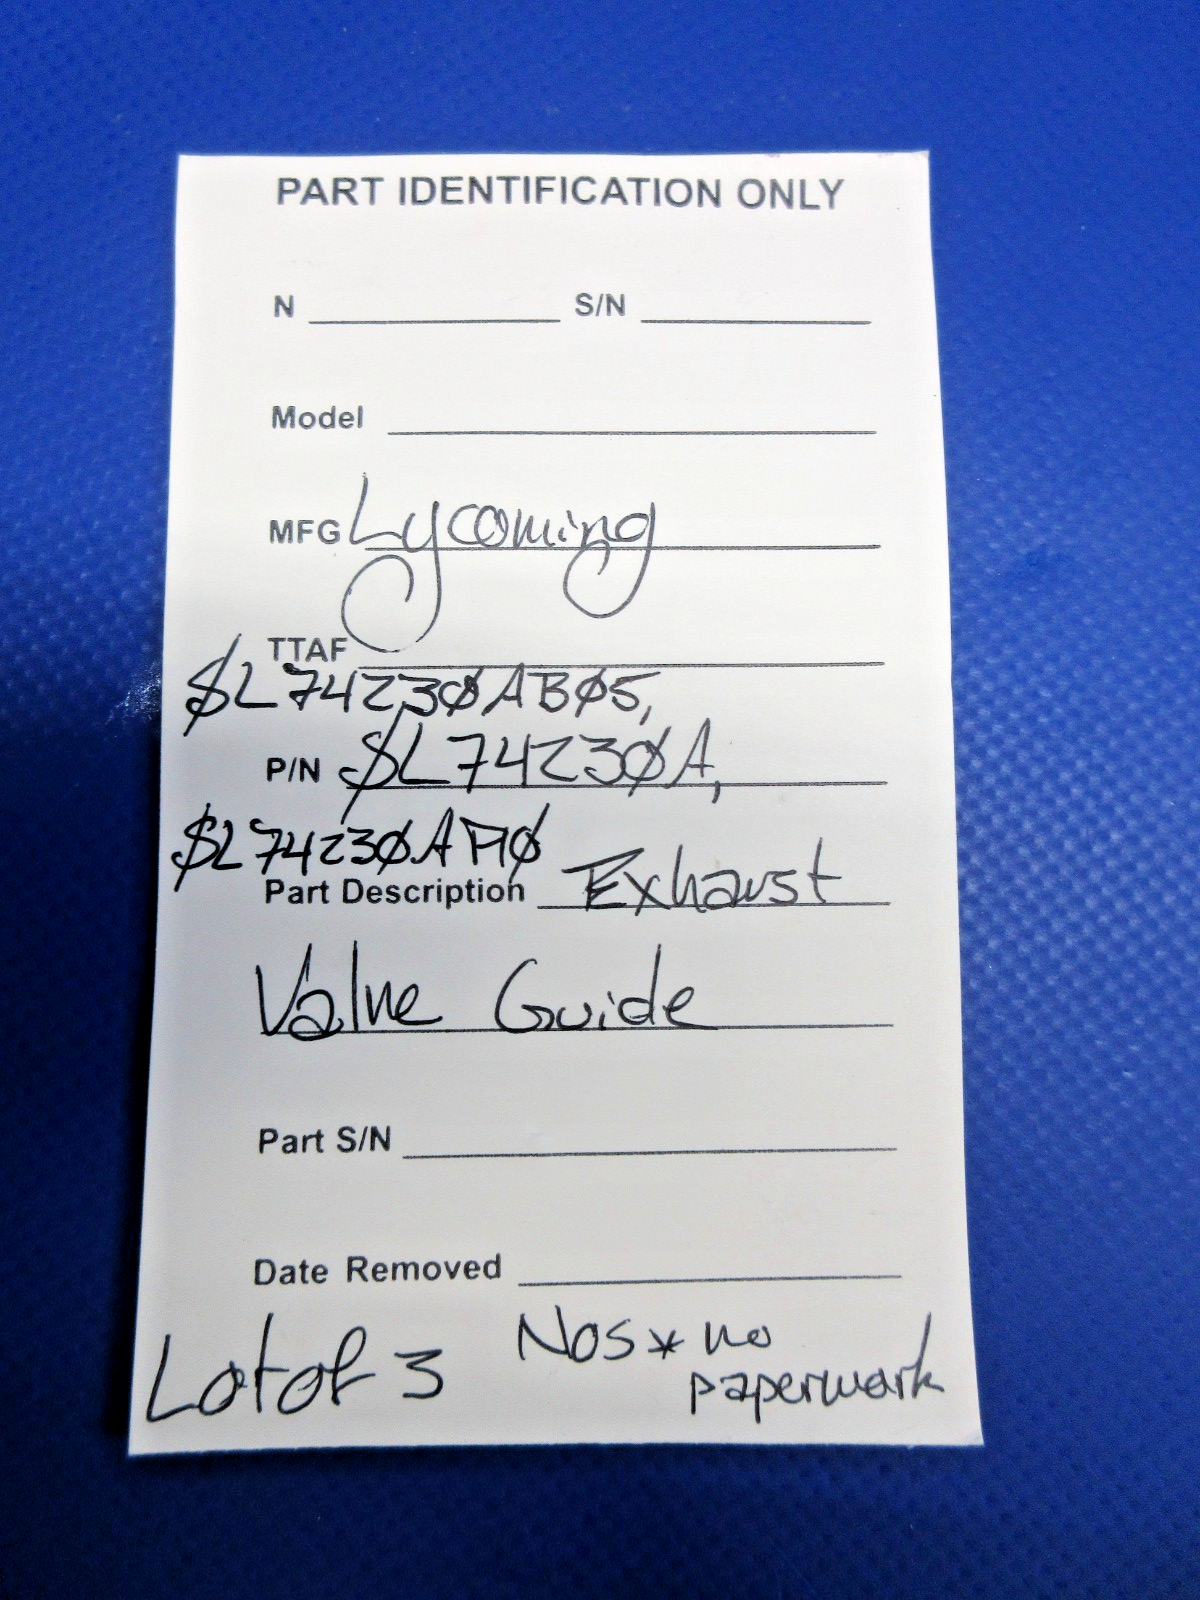 PART IDENTIFICATION ONLY
N S/N
Model
MFG Lycoming
TTAF
SL74230AB05,
P/N SL74230A,
SL74230A P10
Part Description Exhaust
Valve Guide
Part S/N
Date Removed
Lot of 3 NOS * no
paperwork